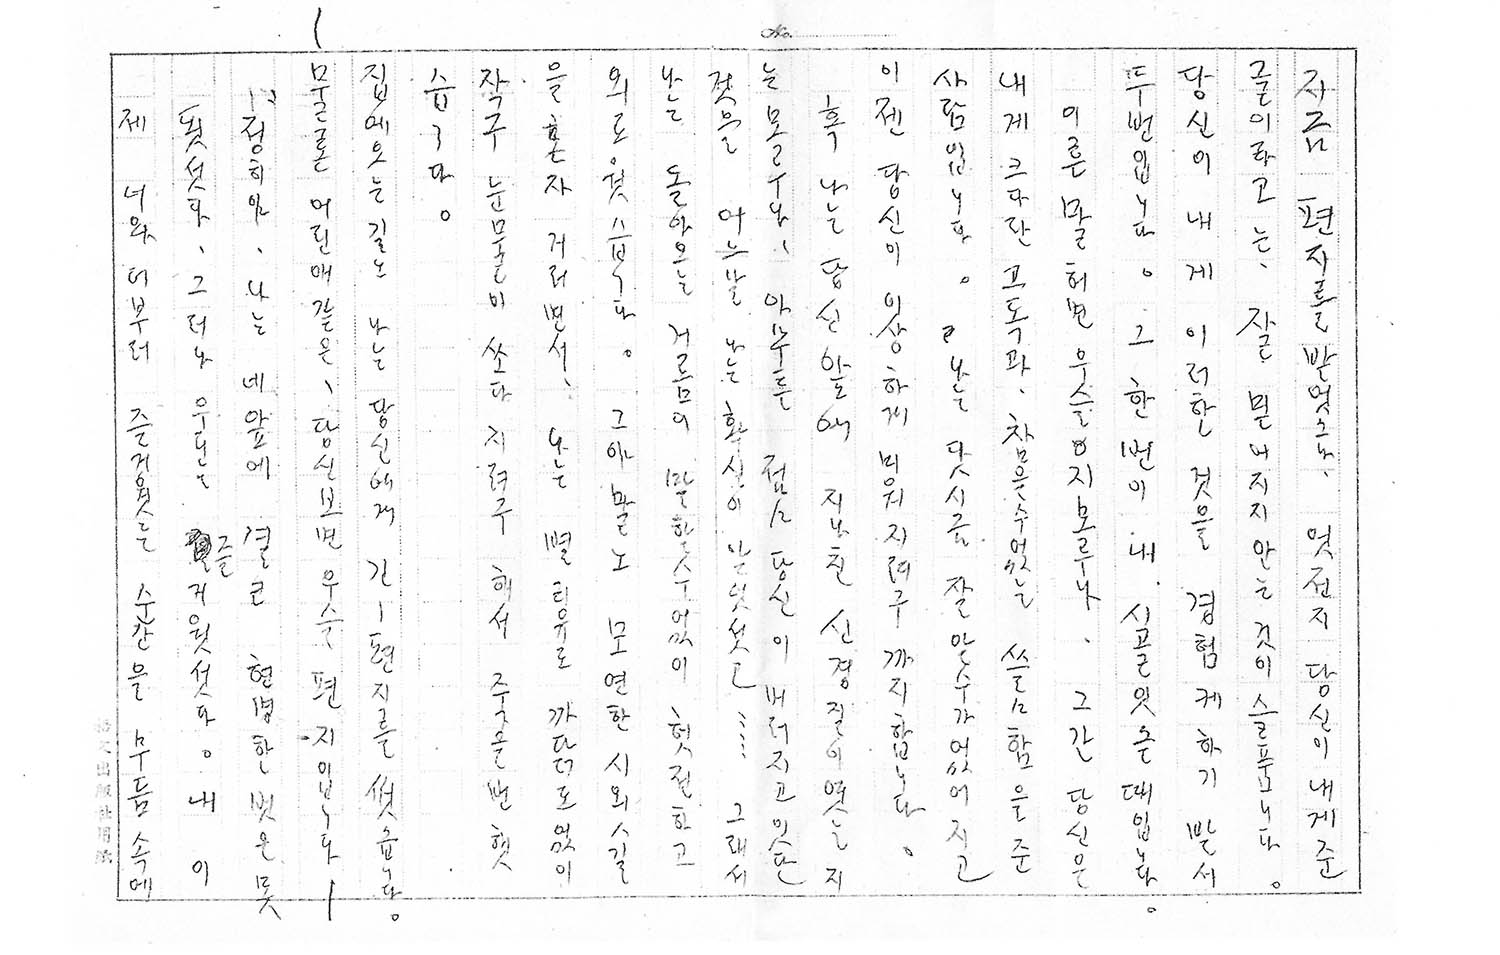 No.
지금 편지를 받엇스나、 엇전지 당신이 내게 준
글이라고는、 잘 믿어지지 안는 것이 슬품니다。
당신이 내게 이러한 것을 경험케하기 발서
두번입니다。 그 한번이 내 시골 잇든 때입니다。
이른 말 허면 우슬지모루나、 그간 당신은
내게 크다란 고독과、 참을수없는 쓸쓸함을 준
사람입니다。 나는 닷시금 잘 알수가없어지고
이젠 당신이 이상하게 미워지려구 까지 합니다。
혹 나는 당신 앞에 지나친 신경질이엿는지
는 모루나、 아무튼 점점 당신이 머러지고잇단
것을 어느날 나는 확실이 알엇섯고…… 그래서
나는 돌아오는 거름이 말할수없이 헛전하고
외로웟습니다。 그야말노 모연한 시외ㅅ길
을 혼자 거러면서、 나는 별 리유도 까닭도 없이
작구 눈물이 쏘다 지려구 해서 죽을번 햇
습니다。
집에오는길노 나는 당신에게 긴ㅣ편지를 썻습니다。
물론 어린애같은、 당신보면 우슬 편지입니다ㅣ
「정히야、 나는 네앞에 결코 현명한 벗은 못
됫섯다。 그러나 우리는 즐거윗섯다。 내 이
제 너와 더부러 즐거웟든 순간을 무듬 속에